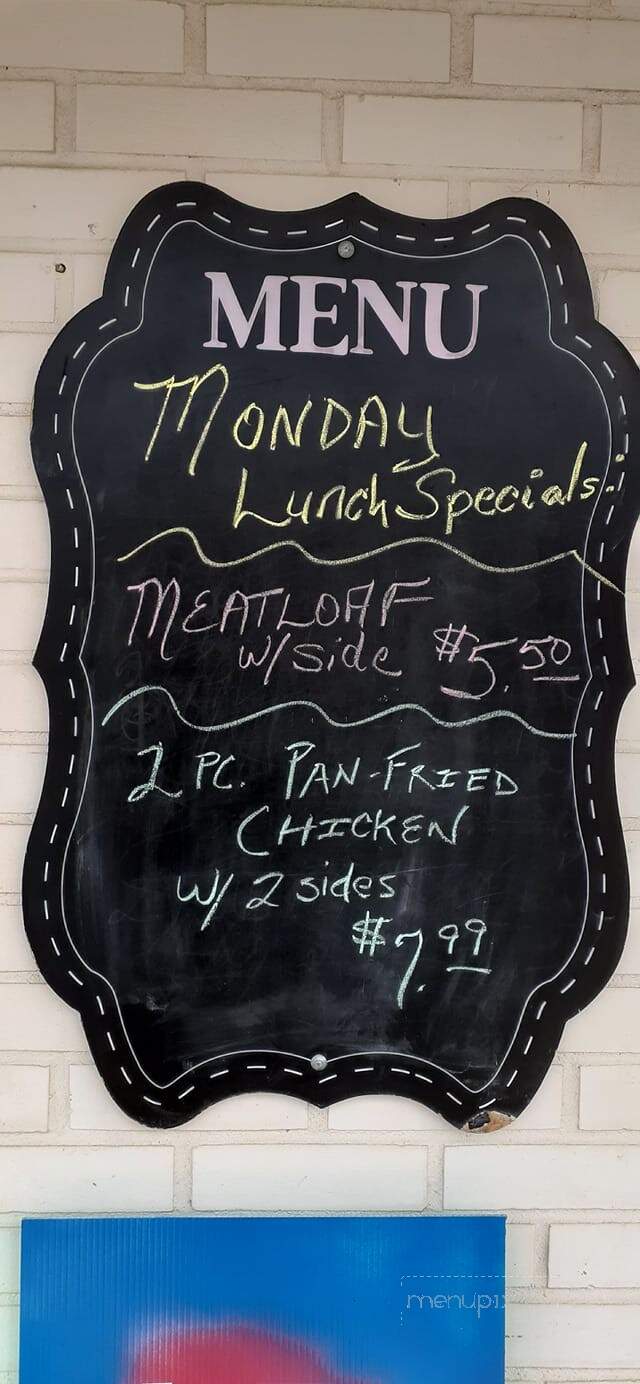 MENU
MONDAY
Lunch Specials:
MEATLOAF
w/side $5.50
2 PC. PAN-FRIED
CHICKEN
w/ 2 sides
$7.99
menupix